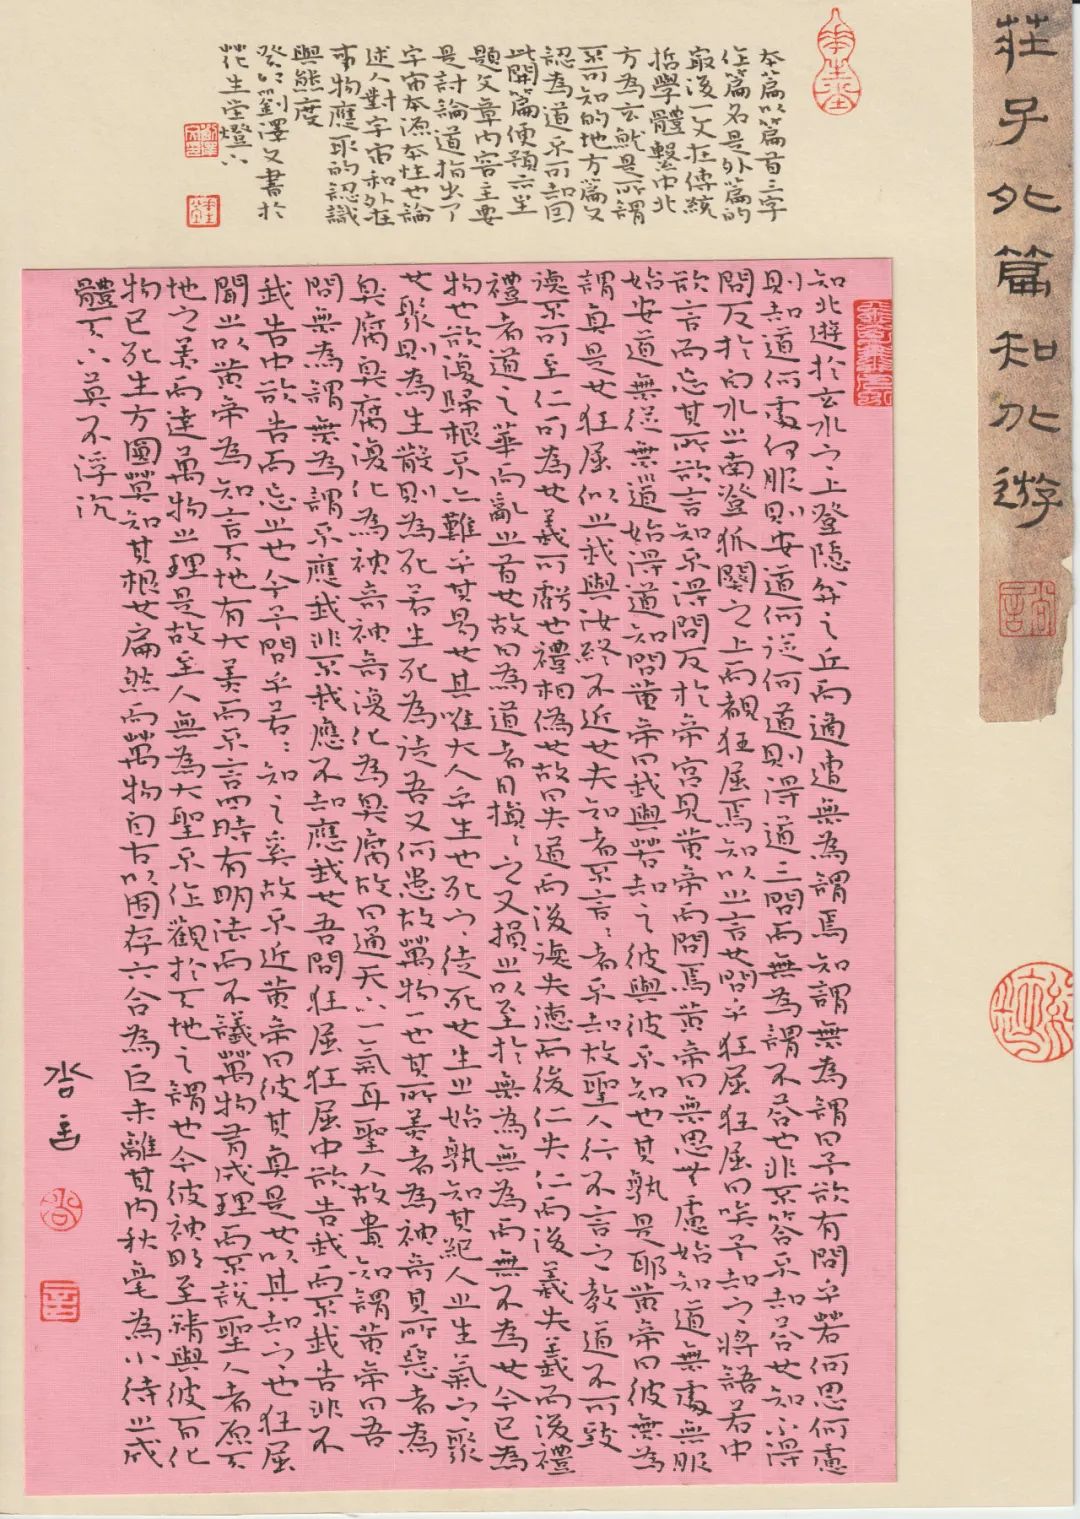 莊子外篇知北遊
本篇以篇首三字
作篇名是外篇的
最後一文在傳統
哲學體繫中北
方為玄就是所謂
不可知的地方篇又
認為道不可知因
此開篇便預示主
題文章內容主要
是討論道指出了
宇宙本源本性也論
述人對宇宙和外在
事物應取的認識
與態度
癸卯劉澤文書於
花生堂燈下
知北遊於玄水之上登隱弅之丘而適遭無為謂焉知謂無為謂曰予欲有問乎若何思何慮
則知道何處何服則安道何從何道則得道三問而無為謂不荅也非不答不知荅也知不得
問反於白水之南登狐闋之上而覩狂屈焉知以之言也問乎狂屈狂屈曰唉予知之將語若中
欲言而忘其所欲言知不得問反於帝宮見黃帝而問焉黃帝曰無思無慮始知道無處無服
始安道無從無道始得道知問黃帝曰我與若知之彼與彼不知也其孰是耶黃帝曰彼無為
謂真是也狂屈似之我與汝終不近也夫知者不言：者不知故聖人行不言之教道不可致
德不可至仁可為也義可虧也禮相偽也故曰失道而後德失德而後仁失仁而後義失義而後禮
禮者道之華而亂之首也故曰為道者日損：之又損之以至於無為無為而無不為也今已為
物也欲復歸根不亦難乎其易也其唯大人乎生也死之徒死也生之始孰知其紀人之生氣之聚
也聚則為生散則為死若生死為徒吾又何患故萬物一也其所美者為神奇其所惡者為
臭腐臭腐復化為神奇神奇復化為臭腐故曰通天下一氣耳聖人故貴一知謂黃帝曰吾
問無為謂無為謂不應我非不我應不知應我也吾問狂屈狂屈中欲告我而不我告非不
我告中欲告而忘之也今予問乎若：知之奚故不近黃帝曰彼其真是也以其知之也狂屈
聞之以黃帝為知言天地有大美而不言四時有明法而不議萬物有成理而不說聖人者原天
地之美而達萬物之理是故至人無為大聖不作觀於天地之謂也今彼神明至精與彼百化
物已死生方圓莫知其根也扁然而萬物自古以固存六合為巨未離其內秋毫為小待之成
體天下莫不浮沉